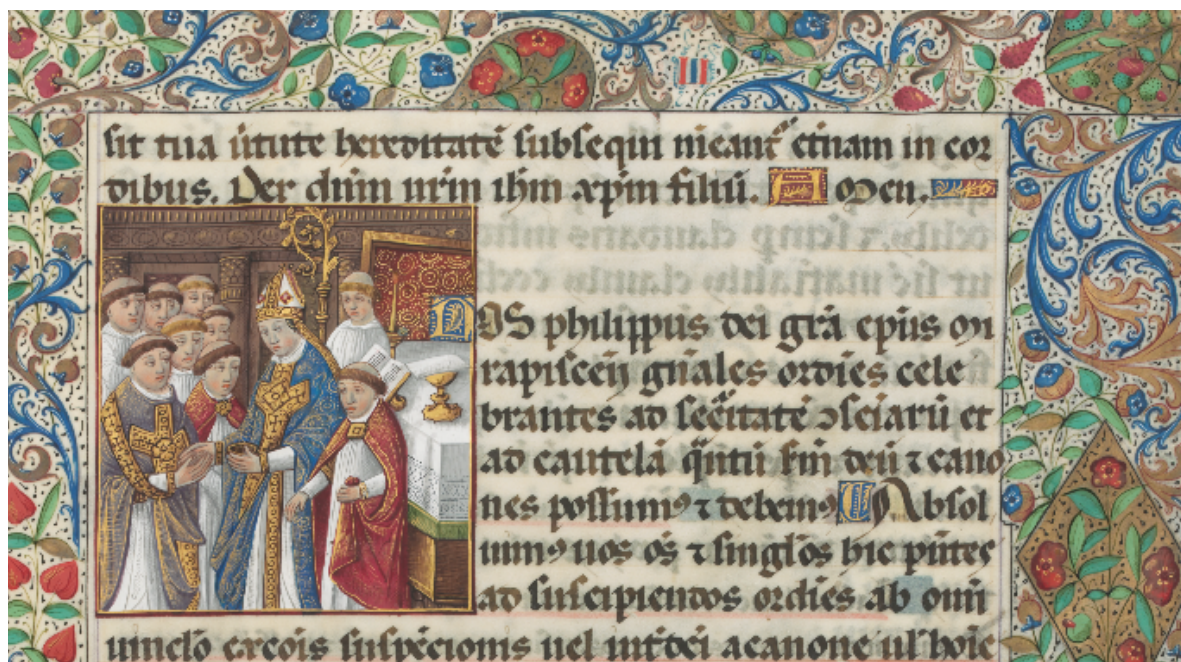 sit tua v̄tute hereditatē subsequi meant᷑ et̄nam in cor
dibus. Per dn̄m nr̄m ih̄m xp̄m filiū. Amen.
NOS philippus dei grā ep̄us mi
rapiscen̄ gn̄ales ordīes cele
brantes ad sec̄itatē ꝯsciarū et
ad cautelā q̄ntū sm̄ deū ⁊ cano
nes possumꝯ ⁊ debemꝯ Absol
uimꝯ uos os̄ ⁊ singl̄os hic pn̄tes
ad suscipiendos ordīes ab om̄i
uinclō exc̄ois suspēcionis uel int̄dc̄i a canone ul̄ hoīe